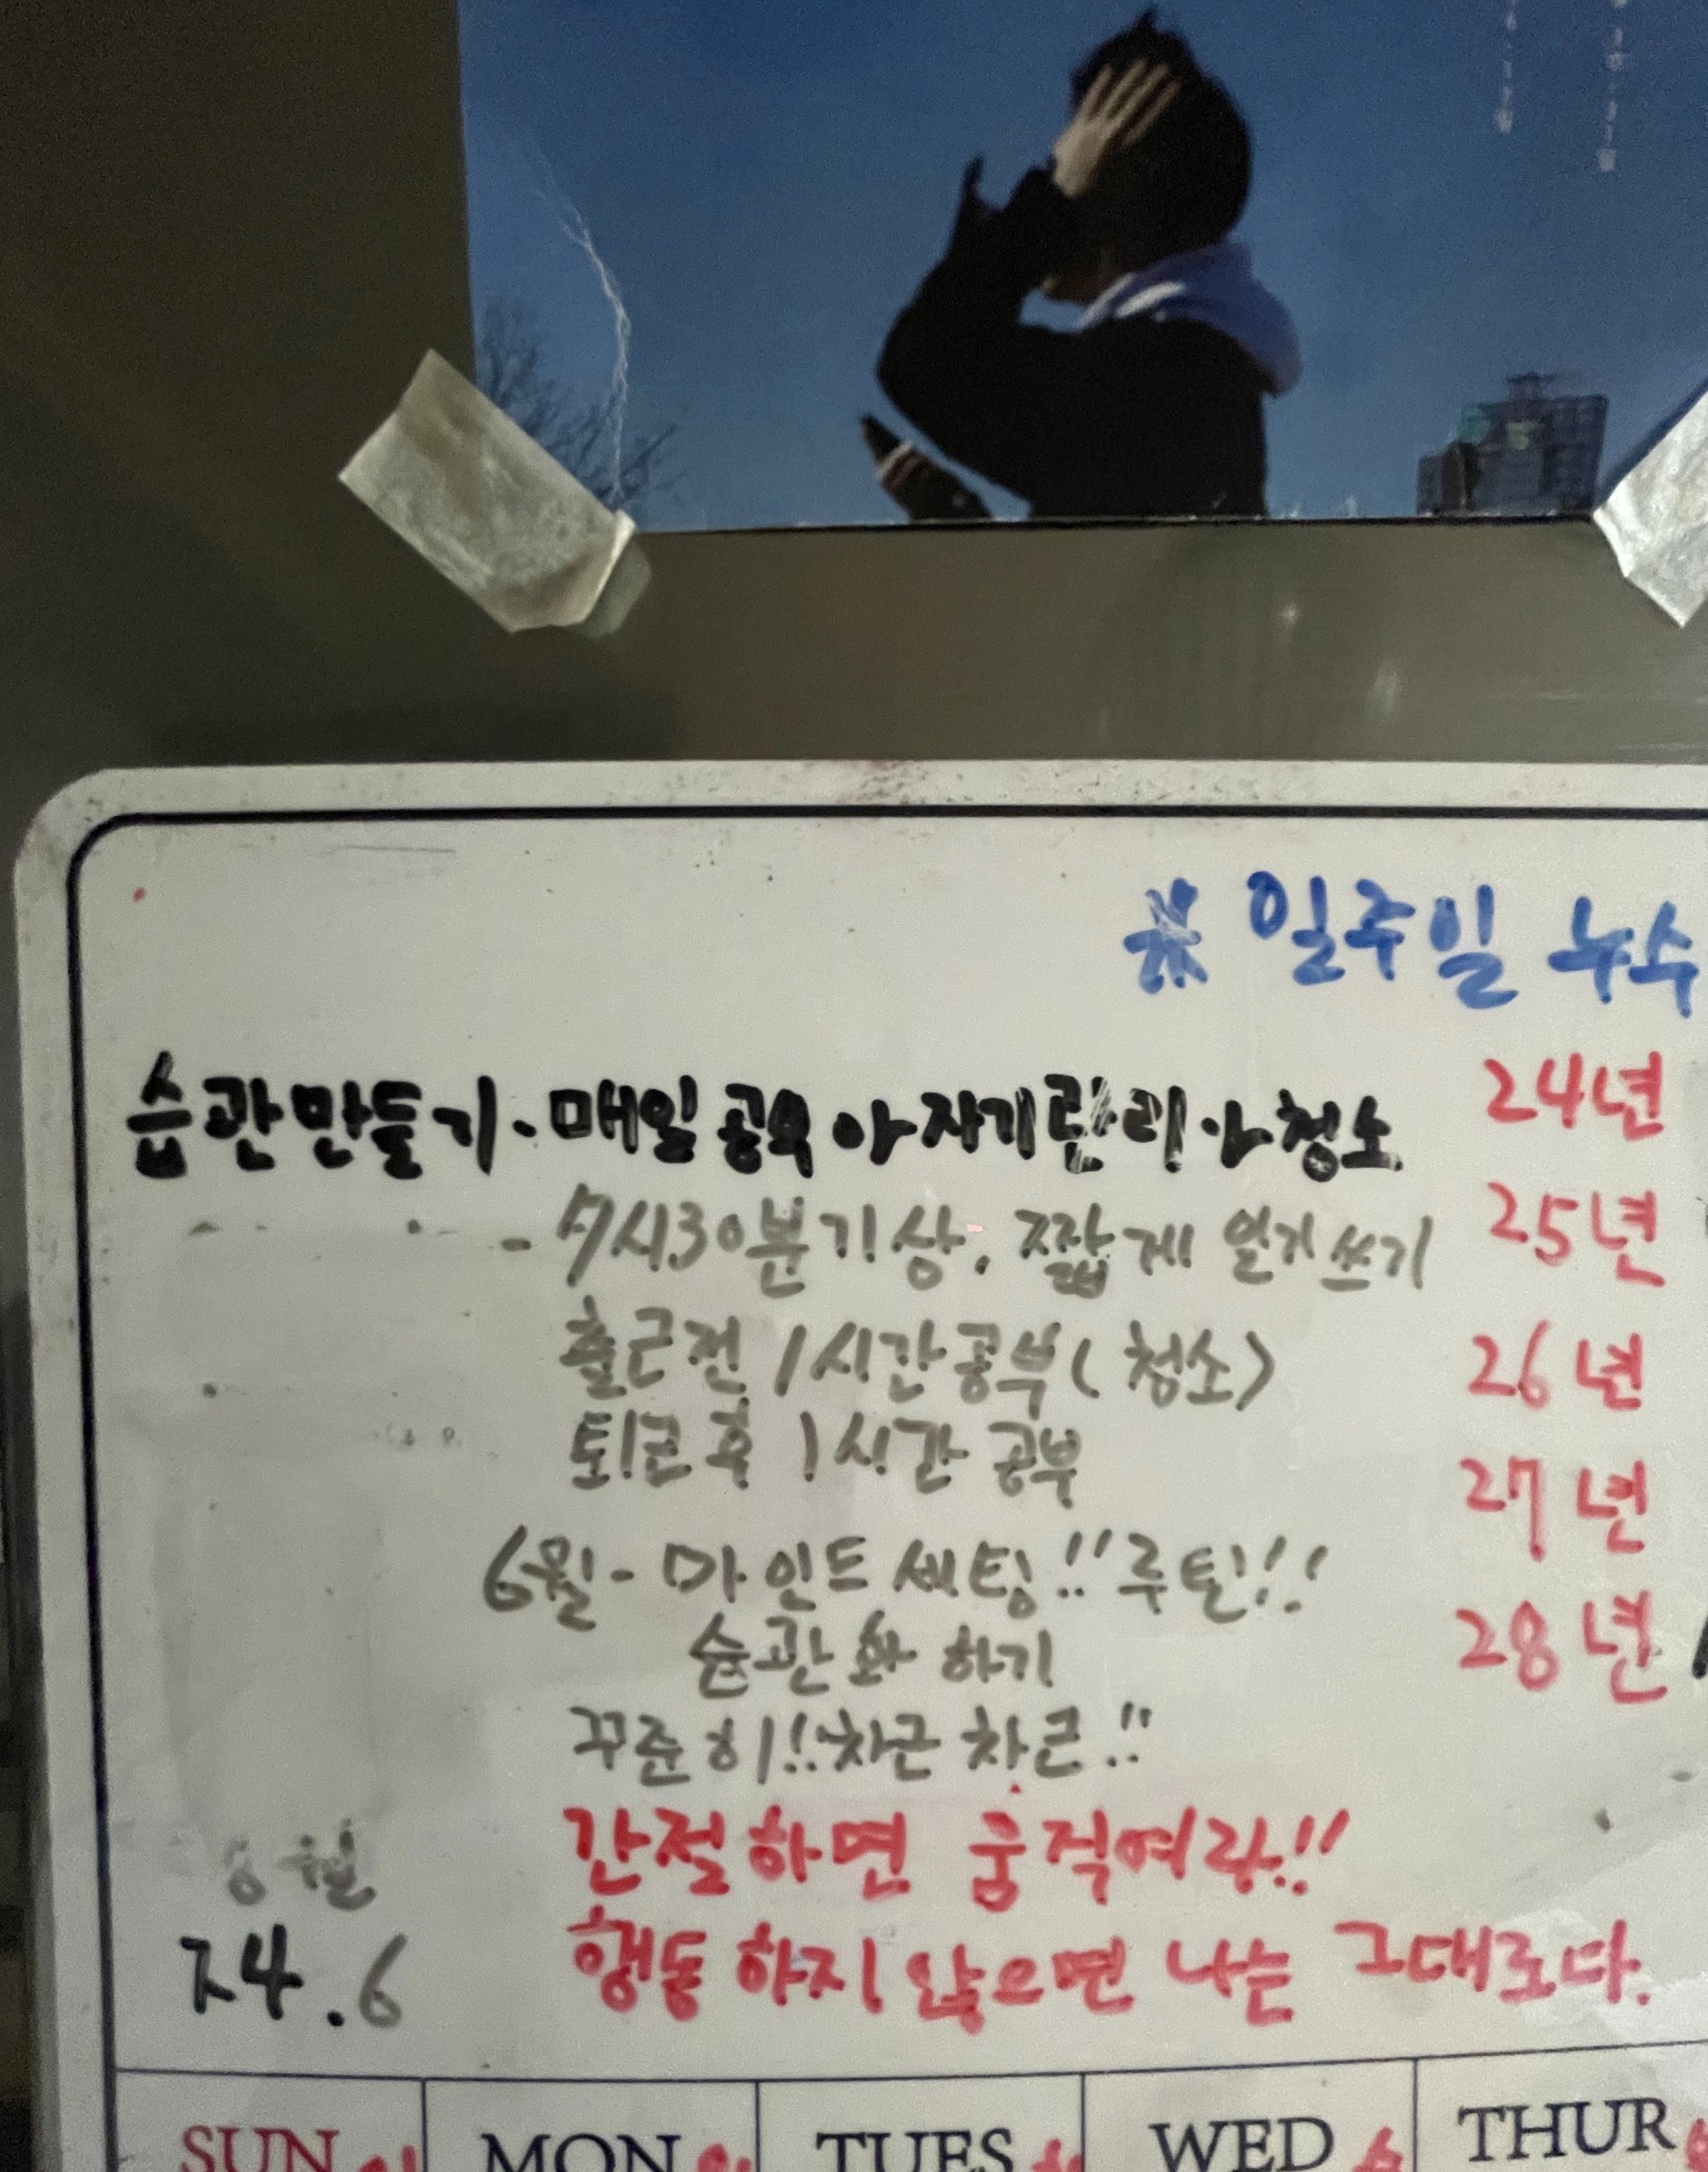 ※ 일주일 누수
습관만들기. 매일 공부 아 자기관리 아 청소
- 7시30분 기상. 짧게 일기쓰기
출근전 1시간공부(청소)
퇴근 후 1시간 공부
6월 - 마인드 세팅!! 루틴!!
습관화 하기
꾸준히!! 차근 차근!!
간절하면 움직여라!!
행동하지 않으면 나는 그대로다.
24년
25년
26년
27년
28년
월
24.6
SUN MON TUES WED THUR